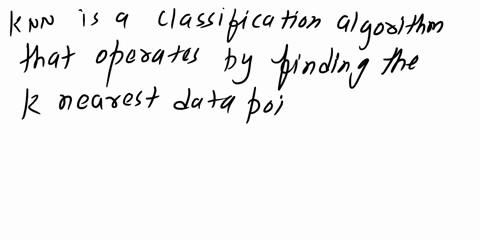 KNN is a classification algorithm
that operates by finding the
K nearest data poi